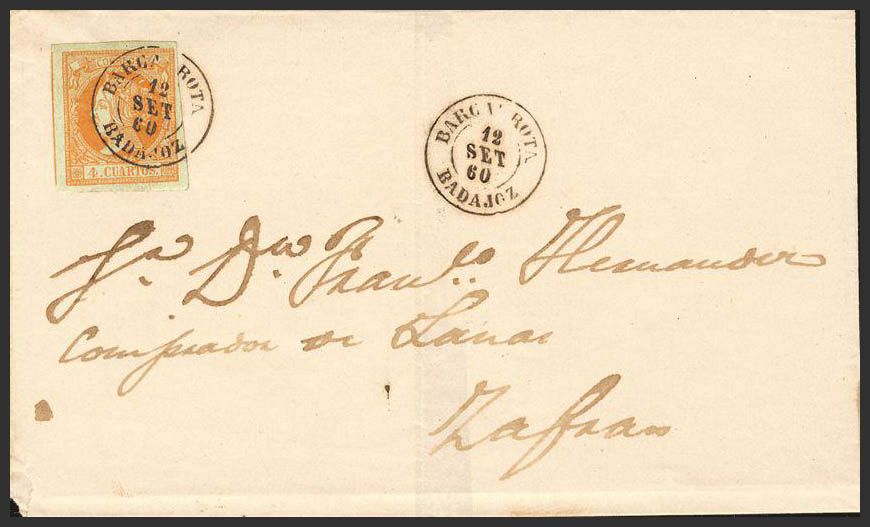 CORREOS
BARCARROTA
12
SET
60
BADAJOZ
4 CUARTOS.
BARCARROTA
12
SET
60
BADAJOZ
Sr. Dn. Franco. Hernandez
Comprador de Lanas
Zafra